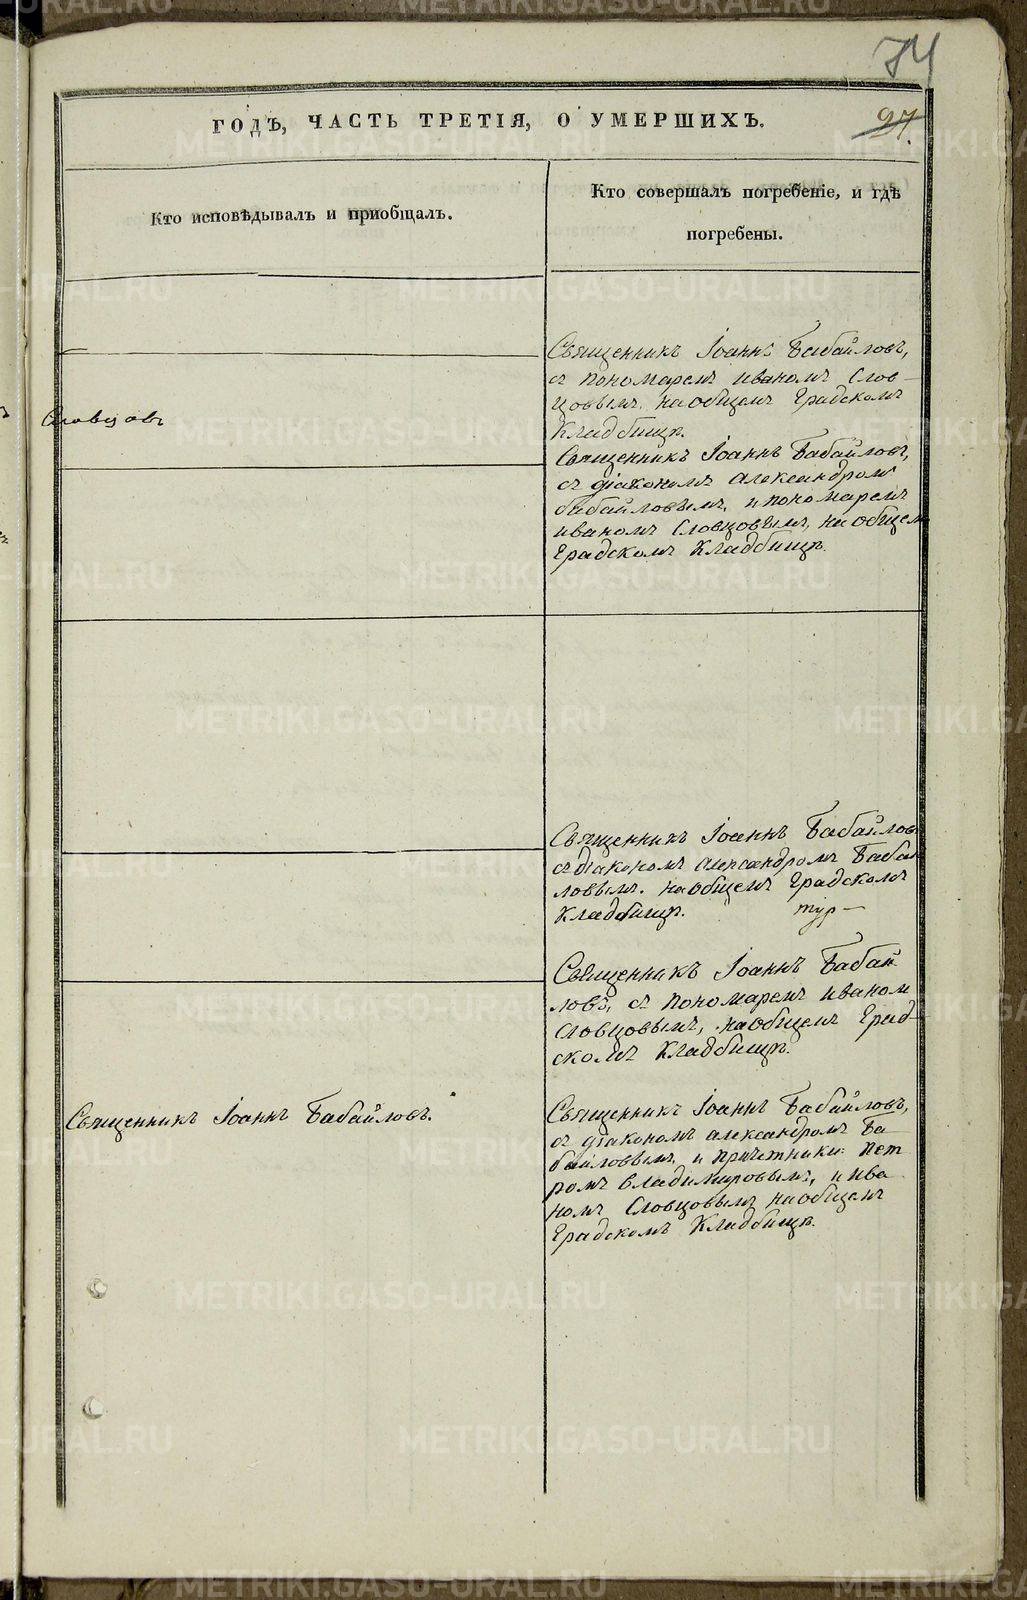 74
ГОДЪ, ЧАСТЬ ТРЕТІЯ, О УМЕРШИХЪ.
97.
Кто исповѣдывалъ и приобщалъ.
Кто совершалъ погребеніе, и гдѣ
погребены.
Словцовъ
Священникъ Іоаннъ Бабайловъ,
съ пономаремъ иваномъ Слов-
цовымъ. на общемъ Градскомъ
Кладбищѣ.
Священникъ Іоаннъ Бабайловъ,
съ діакономъ александромъ
бабайловымъ, и пономаремъ
иваномъ Словцовымъ, на общем
Градскомъ Кладбищѣ.
Священникъ Іоаннъ Бабайлов
съ діакономъ александромъ Бабай
ловымъ. на общемъ Градскомъ
Кладбищѣ. тур—
Священникъ Іоаннъ Бабай
ловъ, съ пономаремъ иваном
Словцовымъ, на общемъ Град-
скомъ Кладбищѣ.
Священникъ Іоаннъ Бабайловъ.
Священникъ Іоаннъ Бабайловъ,
съ діакономъ александромъ Ба-
байловымъ, и причетники: Пет
ромъ владимировымъ, и ива
номъ Словцовымъ на общемъ
Градскомъ Кладбищѣ.
METRIKI.GASO-URAL.RU